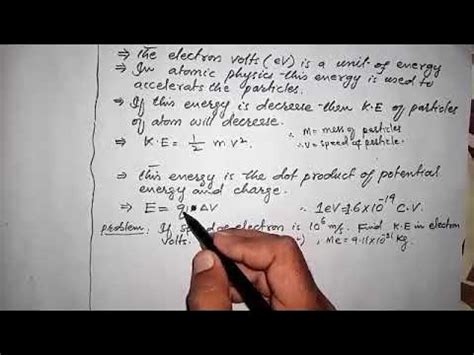 ⇒ The electron volts (eV) is a unit of energy
⇒ In atomic physics this energy is used to
accelerats the particles.
⇒ If this energy is decrease then K.E of particles
of atom will decrease.
⇒ K.E = 1/2 m v². ∴ M = mass of particles
∴ v = speed of particle.
⇒ this energy is the dot product of potential
energy and charge.
⇒ E = q • ΔV ∴ 1eV = 1.6×10⁻¹⁹ C.V.
problem: If speed of electron is 10⁶ m/s. Find K.E in electron
volts. , Me = 9.11×10⁻³¹ Kg.